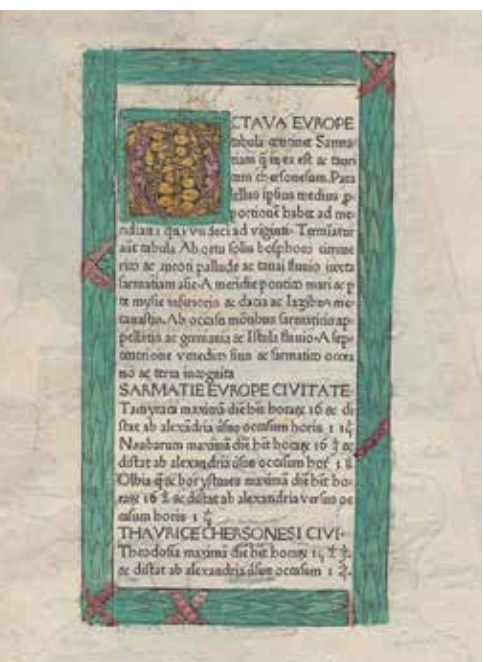 OCTAVA EVROPE
tabula continet Sarma
tiam q̄ in ea est & tauri
cam chersonesum. Para
llellus ipsius medius ,p
portionē habet ad me
ridianū quā vndeci ad viginti. Termīatur
aūt tabula Ab ortu solis bosphoro cimme
rico ac meoti pallude ac tanai fluuio iuxta
sarmatiam asie. A meridie pontico mari & p
te mysie inferioris & dacia ac Iazibus me
tanastis. Ab occasu mōtibus sarmaticis ap
pellatis ac germania & Istula fluuio. A sep
tentrione venedico sinu & sarmatico occea
no ac terra incognita
SARMATIE EVROPE CIVITATE·
Tamyraca maximā diē hēt horaꝝ 16 & di
stat ab alexādria ūsus occasum horis 1
Naubarum maximā diē hēt horaꝝ 16 &
distat ab alexandria ūsus occasum hor
Olbia q̄ & borystenes maximā diē hēt ho
raꝝ 16 & distat ab alexandria versus oc
casum horis 1
THAVRICE CHERSONESI CIVI·
Theodosia maximā diē hēt horaꝝ
& distat ab alexandria ūsus occasum 1